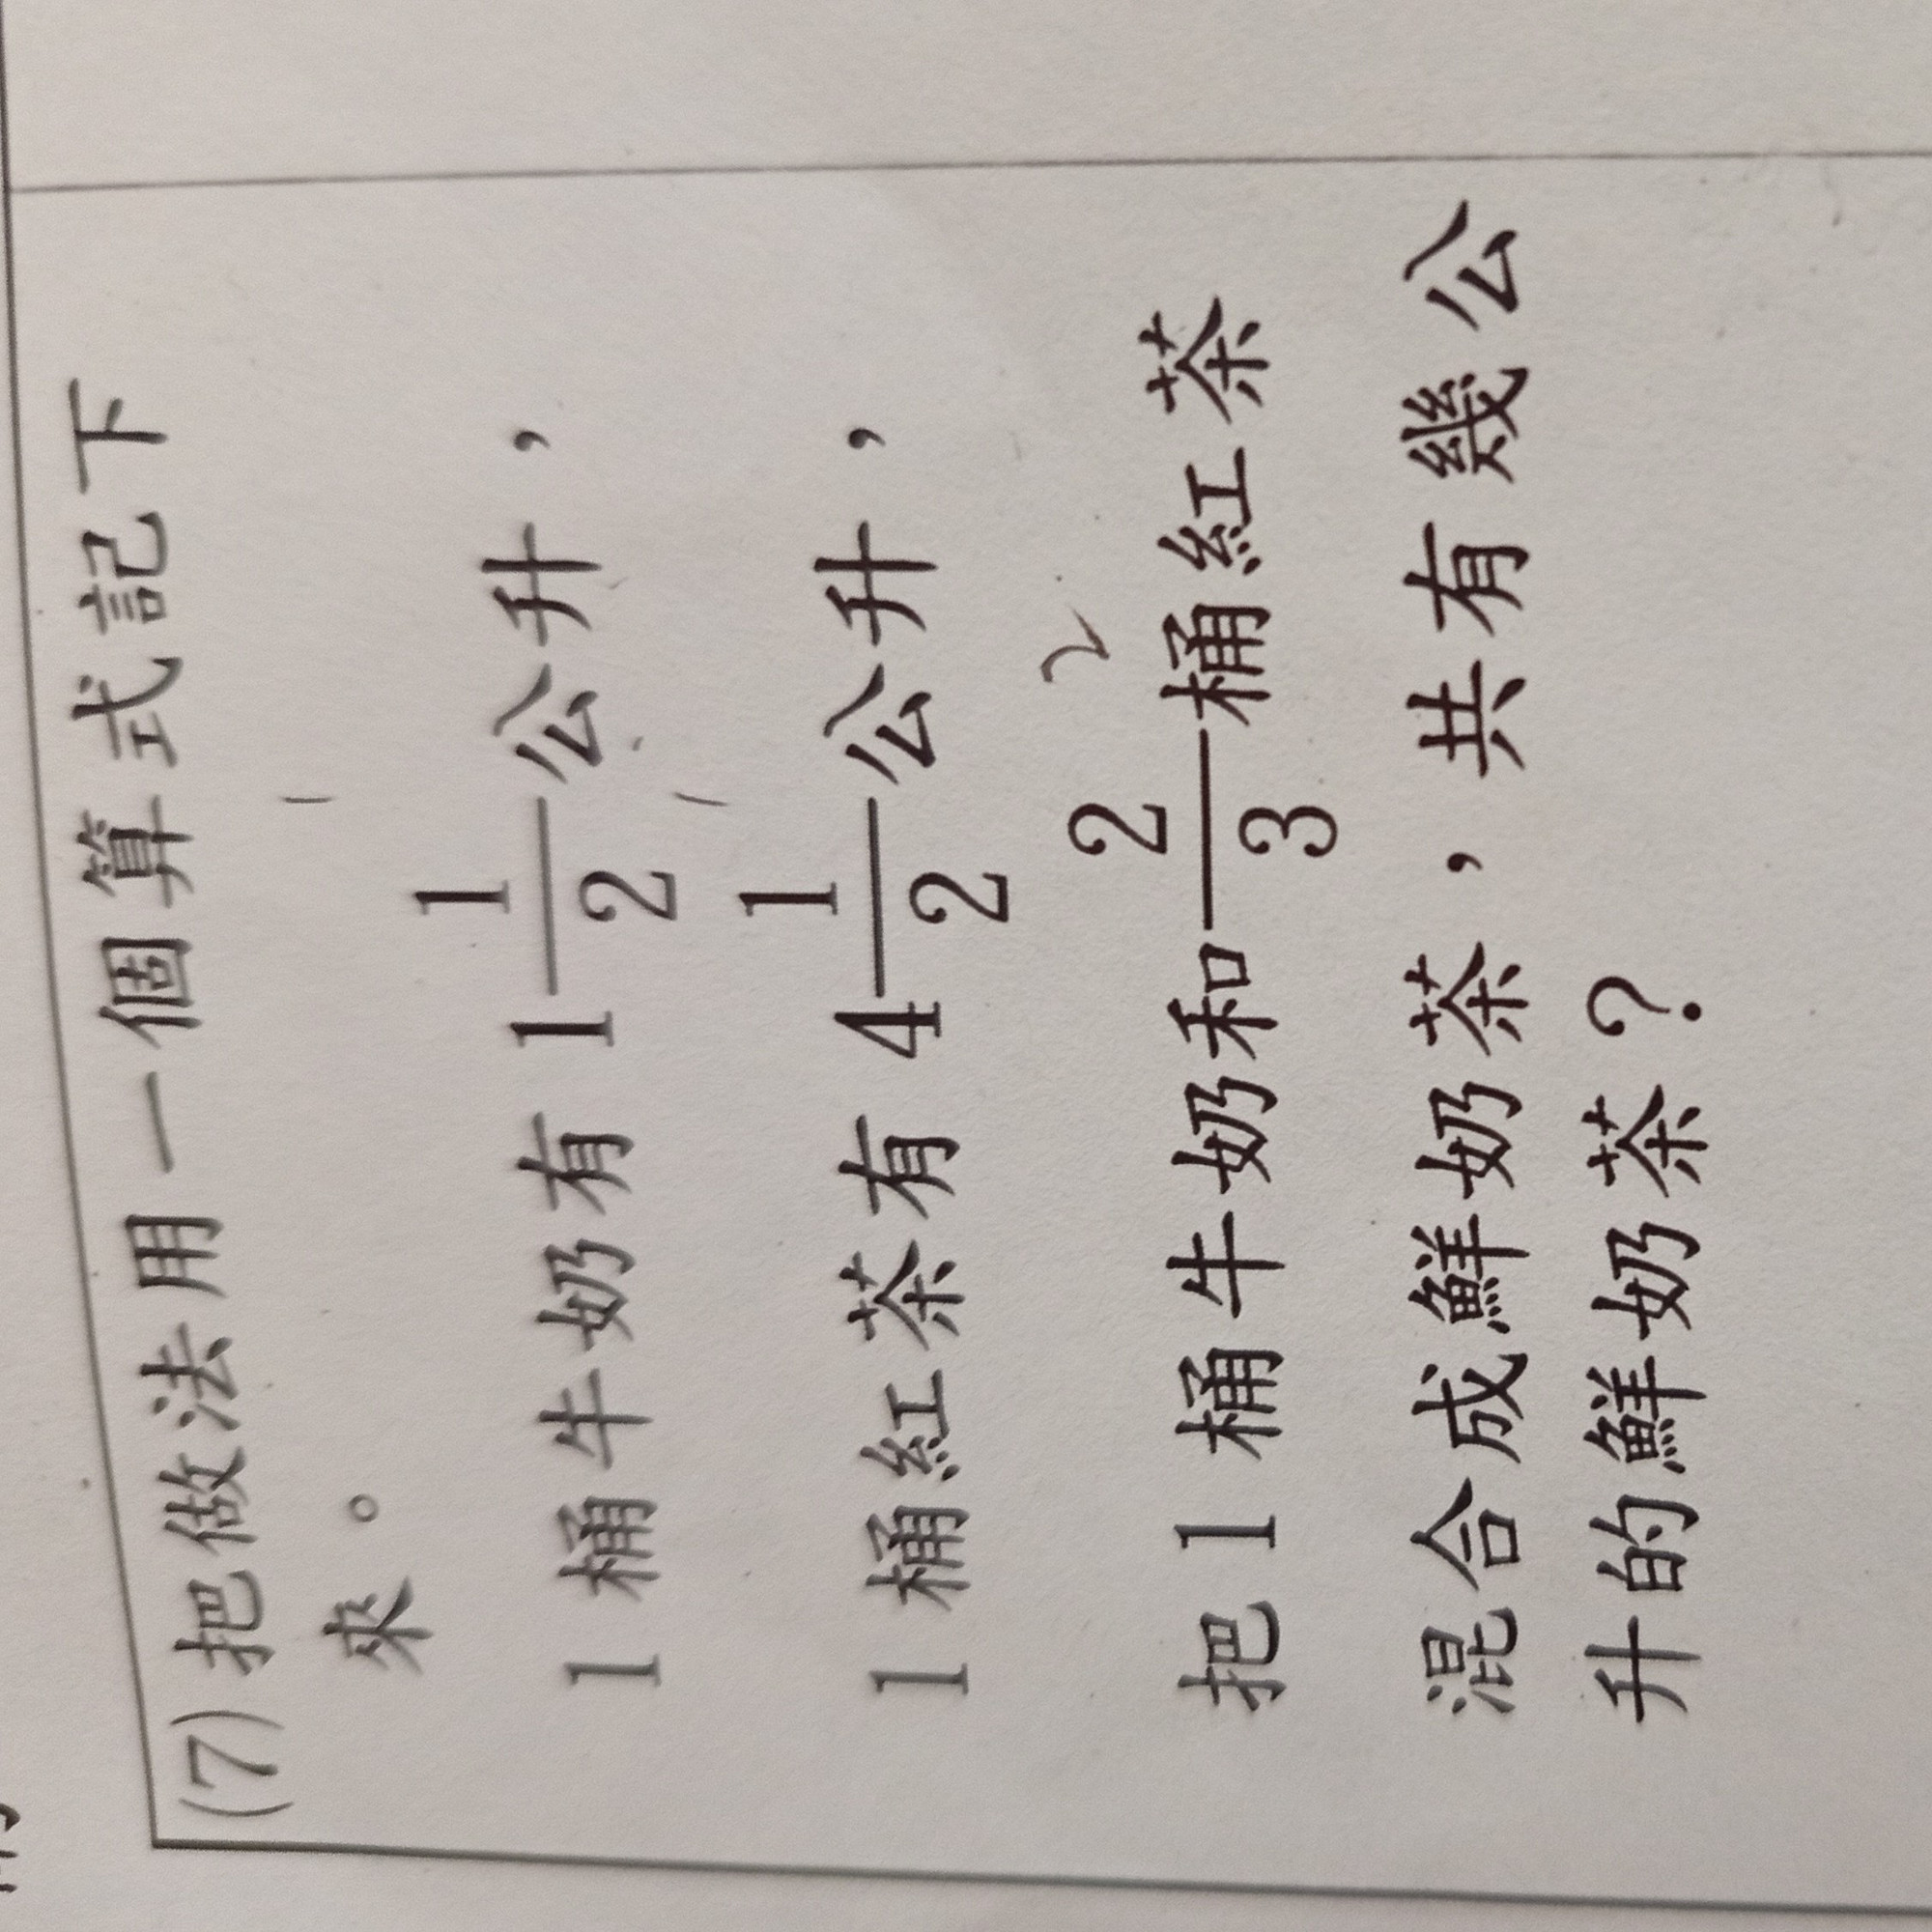 (7)把做法用一個算式記下
來。
1 桶牛奶有 1 1/2 公升，
1 桶紅茶有 4 1/2 公升，
把 1 桶牛奶和 2/3 桶紅茶
混合成鮮奶茶，共有幾公
升的鮮奶茶？